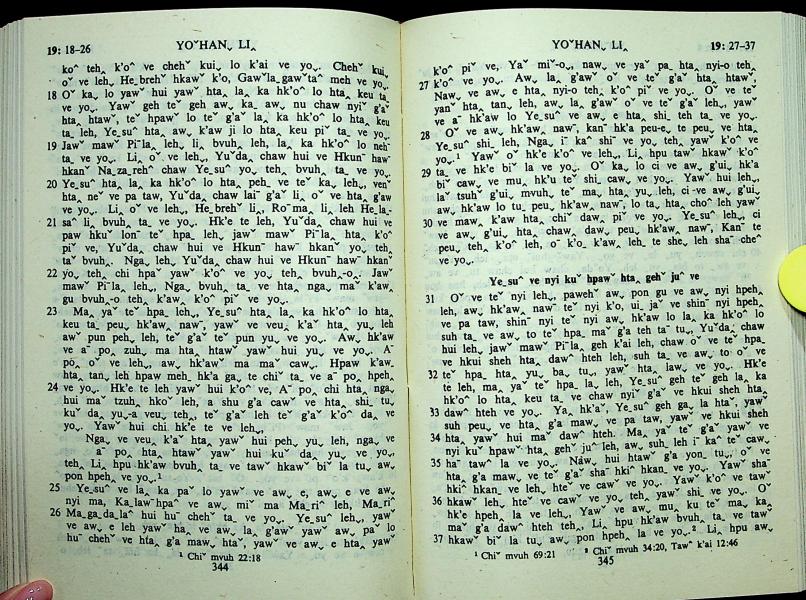 19: 18-26 YOˇHAN˯ LI˰
ko˰ teh˰ k'o˰ ve chehˇ kui˯ lo k'ai ve yo˯. Chehˇ kui˯
oˇ ve leh˯ He˯brehˇ hkawˇ k'o, Gawˇla˯gawˇtaˆ meh ve yo˯.
18 Oˇ ka˯ lo yawˇ hui yawˇ hta˰ la˰ ka hk'oˆ lo hta˰ keu ta˯
ve yo˯. Yawˇ geh teˇ geh aw˰ ka˯ aw˰ nu chaw nyiˇ g'aˇ
hta˰ htawˇ, teˇ hpawˇ lo teˇ g'aˇ la˰ ka hk'oˆ lo hta˰ keu
ta˯ leh˰ Ye˯suˆ hta˰ aw˰ k'aw ji lo hta˰ keu piˇ ta˯ ve yo˯.
19 Jawˇ mawˇ Piˉla˰ leh˰ li˰ bvuh˰ leh˰ la˰ ka hk'oˆ lo nehˉ
ta˯ ve yo˯. Li˰ oˇ ve leh˯, Yuˇda˰ chaw hui ve Hkunˉ hawˇ
hkanˇ Na˯za˯rehˇ chaw Ye˯suˆ yo˯ teh˰ bvuh˰ ta˯ ve yo˯.
20 Ye˯suˆ hta˰ la˰ ka hk'oˆ lo hta˰ peh˰ ve teˇ ka˯ leh˯, venˇ
hta˰ neˇ ve pa taw˰ Yuˇda˰ chaw laiˉ g'aˇ li˰ oˇ ve hta˰ g'aw
ve yo˯. Li˰ oˇ ve leh˯, He˯brehˇ li˰, Roˉma˯ li˰ leh He˯la-
21 saˆ li˰ bvuh˰ ta˯ ve yo˯. Hk'e te leh˰ Yuˇda˰ chaw hui ve
paw hkuˇ lonˉ teˇ hpa˰ leh˰ jawˇ mawˇ Piˉla˰ hta˰ k'oˆ
piˇ ve, Yuˇda˰ chaw hui ve Hkunˉ hawˇ hkanˇ yo˯ teh˰
taˇ bvuh˰. Nga˯ leh˯ Yuˇda˰ chaw hui ve Hkunˉ hawˇ hkanˇ
22 yo˯ teh˰ chi hpaˇ yawˇ k'oˆ ve yo˯ teh˰ bvuh˰-o˯. Jawˇ
mawˇ Piˉla˰ leh˯, Nga˯ bvuh˰ ta˯ ve hta˰ nga˯ maˇ k'aw˰
gu bvuh˰-o teh˰ k'aw˰ k'oˆ piˇ ve yo˯.
23 Ma˰ yaˇ teˇ hpa˰ leh˯, Ye˯suˆ hta˰ la˰ ka hk'oˆ lo hta˰
keu ta˯ peu˰ hk'aw˰ nawˉ, yawˇ ve veu˰ k'aˇ hta˰ yu˰ leh
awˇ pun peh˰ leh˰ teˇ g'aˇ teˇ pun yu˰ ve yo˯. Aw˰ hk'awˇ
ve aˉ po˰ zuh˰ ma hta˰ htawˇ yawˇ hui yu˰ ve yo˯. Aˉ
po˰ oˇ ve leh˰ aw˰ hk'awˇ ma maˇ caw˰. Hpaw k'aw˰
hta˰ tan˰ leh hpaw meh˰ hk'a ga˰ te chiˇ ta˯ ve aˉ po˰ hpeh˰
24 ve yo˯. Hk'e te leh yawˇ hui k'oˆ ve, Aˉ po˰ chi hta˰ nga˰
hui maˇ tzuh˰ hkoˇ leh˰ a shu g'a cawˇ ve hta˰ shi˯ tu˯
kuˇ da˰ yu˰-a veu˯ teh˰ teˇ g'aˇ leh teˇ g'aˇ k'oˆ da˰ ve
yo˯. Yawˇ hui chi hk'e te ve leh˯,
Nga˰ ve veu˰ k'aˇ hta˰ yawˇ hui peh˰ yu˰ leh˰ nga˰ ve
aˉ po˰ hta˰ htawˇ yawˇ hui kuˇ da˰ yu˰ ve yo˯
teh˰ Li˰ hpu hk'aw bvuh˰ ta˯ ve tawˇ hkawˇ biˇ la tu˯ aw˰
pon hpeh˰ ve yo˯.¹
25 Ye˯suˆ ve la˰ ka paˇ lo yawˇ ve aw˯ e, aw˯ e ve aw˰
nyi ma, Ka˯lawˇhpaˆ ve aw˰ miˇ ma Ma˯riˇ leh˰ Ma˯riˇ
26 Ma˯ga˯da˯laˆ hui huˉ chehˇ ta˯ ve yo˯. Ye˯suˆ leh˰ yawˇ
ve aw˯ e leh yawˇ ha˰ ve aw˰ la˰ g'awˇ yawˇ aw˰ paˇ lo
huˉ chehˇ ve hta˰ g'a maw˰ htaˇ, yawˇ ve aw˯ e hta˰ yawˇ
¹ Chiˇ mvuh 22:18
344
YOˇHAN˯ LI˰ 19: 27-37
k'oˆ piˇ ve, Yaˇ miˇ-o˯, naw˯ ve yaˇ pa˯ hta˰ nyi-o teh˰
27 k'oˆ ve yo˯. Aw˰ la˰ g'awˇ oˇ ve teˇ g'aˇ hta˰ htawˇ,
Naw˯ ve aw˯ e hta˰ nyi-o teh˰ k'oˆ piˇ ve yo˯. Oˇ ve teˇ
yanˇ hta˰ tan˰ leh˰ aw˰ la˰ g'awˇ oˇ ve teˇ g'aˇ leh˰ yawˇ
ve aˉ hk'aw lo Ye˯suˆ ve aw˯ e hta˰ shi˯ teh ta˯ ve yo˯.
28 Oˇ ve aw˰ hk'aw˰ nawˉ, kanˉ hk'a peu-e˯ te peu˰ ve hta˰
Ye˯suˆ shi˯ leh˰ Nga˯ iˉ kaˆ shiˇ ve yo˯ teh˰ yawˇ k'oˆ ve
yo˯.¹ Yawˇ oˇ hk'e k'oˆ ve leh˯, Li˰ hpu tawˇ hkawˇ k'oˆ
29 ta˯ ve hk'e biˇ la ve yo˯. Oˇ ka˯ lo ci ve aw˰ g'ui˰ hk'a
biˇ caw˰ ve mu˰ hk'u teˇ shi˯ caw˰ ve yo˯. Yawˇ hui leh˰
laˇ tsuhˇ g'ui˰ mvuh˰ teˇ ma˯ hta˰ yu˰ leh˰ ci-ve aw˰ g'ui˰
aw˰ hk'aw lo tu˰ peu˰ hk'aw˰ nawˉ, lo ta˯ hta˰ choˆ leh yawˇ
30 ve maw˰ k'aw hta˰ chiˇ daw˰ piˇ ve yo˯. Ye˯suˆ leh˰ ci
ve aw˰ g'ui˰ hta˰ chaw˰ daw˰ peu˰ hk'aw˰ nawˉ, Kanˉ te
peu˰ teh˰ k'oˆ leh˰ oˉ k'o˰ k'aw˰ leh˰ te she˰ leh shaˉ cheˆ
ve yo˯.
Ye˯suˆ ve nyi kuˇ hpawˇ hta˰ gehˇ juˆ ve
31 Oˇ ve teˇ nyi leh˯, pawehˇ aw˰ pon gu ve aw˰ nyi hpeh˰
leh˰ aw˰ hk'aw˰ nawˉ teˇ nyi k'o˰ ui˰ jaˇ ve shinˇ nyi hpeh˰
ve pa taw˰ shinˇ nyi teˇ nyi aw˰ hk'aw lo la˰ ka hk'oˆ lo
suh ta˯ ve aw˰ to teˇ hpaˇ maˇ g'a teh taˉ tu˯, Yuˇda˰ chaw
hui leh˰ jawˇ mawˇ Piˉla˰ geh k'ai leh˰ chaw oˇ ve teˇ hpaˇ
ve hkui sheh hta˰ dawˆ hteh leh˰ suh ta˯ ve aw˰ to oˇ ve
32 teˇ hpaˇ hta˰ yu˰ ba˰ tu˯, yawˇ hta˰ law˰ ve yo˯. Hk'e
te leh˰ ma˰ yaˇ teˇ hpa˰ la˰ leh˰ Ye˯suˆ geh teˇ geh la˰ ka
hk'oˆ lo hta˰ keu ta˯ ve chaw nyiˇ g'aˇ ve hkui sheh hta˰
33 dawˆ hteh ve yo˯. Ya˰ hk'aˇ, Ye˯suˆ geh ga˰ la htaˇ, yawˇ
suh peu˰ ve hta˰ g'a maw˰ ve pa taw˰ yawˇ ve hkui sheh
34 hta˰ yawˇ hui maˇ dawˆ hteh. Ma˰ yaˇ teˇ g'aˇ yawˇ ve
nyi kuˇ hpawˇ hta˰ gehˇ juˆ leh˰ aw˰ suh˰ leh iˉ kaˆ teˇ caw˰
35 haˉ tawˆ la ve yo˯. Naw˰ hui htawˇ g'a yon˰ tu˯, oˇ ve
hta˰ g'a maw˰ ve teˇ g'aˇ shaˉ hkiˆ hkan˰ ve yo˯. Yawˇ shaˉ
hkiˆ hkan˰ ve leh˰ hteˇ ve cawˇ ve yo˯. Yawˇ k'oˆ ve tawˇ
36 hkaw˰ leh˰ hteˇ ve cawˇ ve yo˯ teh˰ yawˇ shi˯ ve yo˯. Oˇ
hk'e hpeh˰ la ve leh˯, Yawˇ ve aw˰ mu˰ ku teˇ ma˯ ka˯
maˇ g'a dawˆ hteh teh˰, Li˰ hpu hk'aw bvuh˰ ta˯ ve tawˇ
37 hkawˇ biˇ la tu˯ aw˰ pon hpeh˰ la ve yo˯.² Li˰ hpu aw˰
¹ Chiˇ mvuh 69:21 ² Chiˇ mvuh 34:20, Tawˆ k'ai 12:46
345